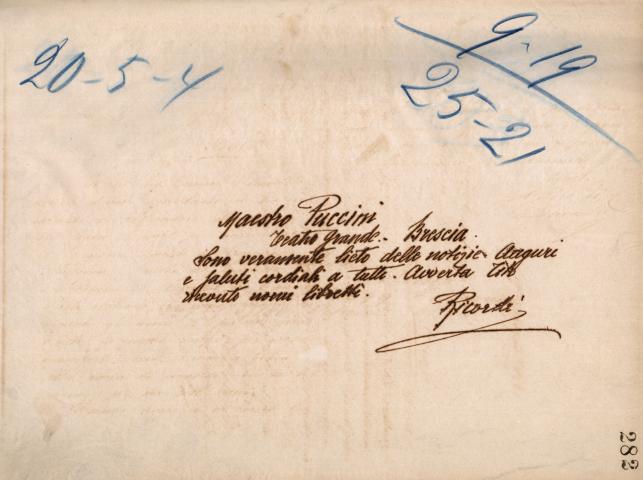 20-5-4
9-19
25-21
Maestro Puccini
Teatro Grande - Brescia.
Sono veramente lieto delle notizie - Auguri
e saluti cordiali a tutti - Avverta Tito
ricevuto nomi libretti.
Ricordi
282